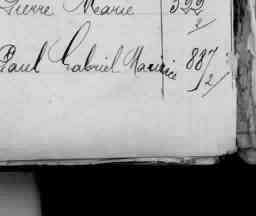 Pierre Marie 399/2
Paul Gabriel Maurice 887/2